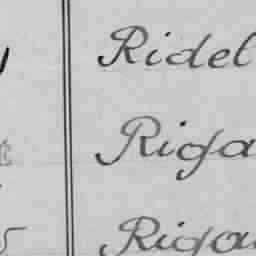 Ridel
Riga
Riga